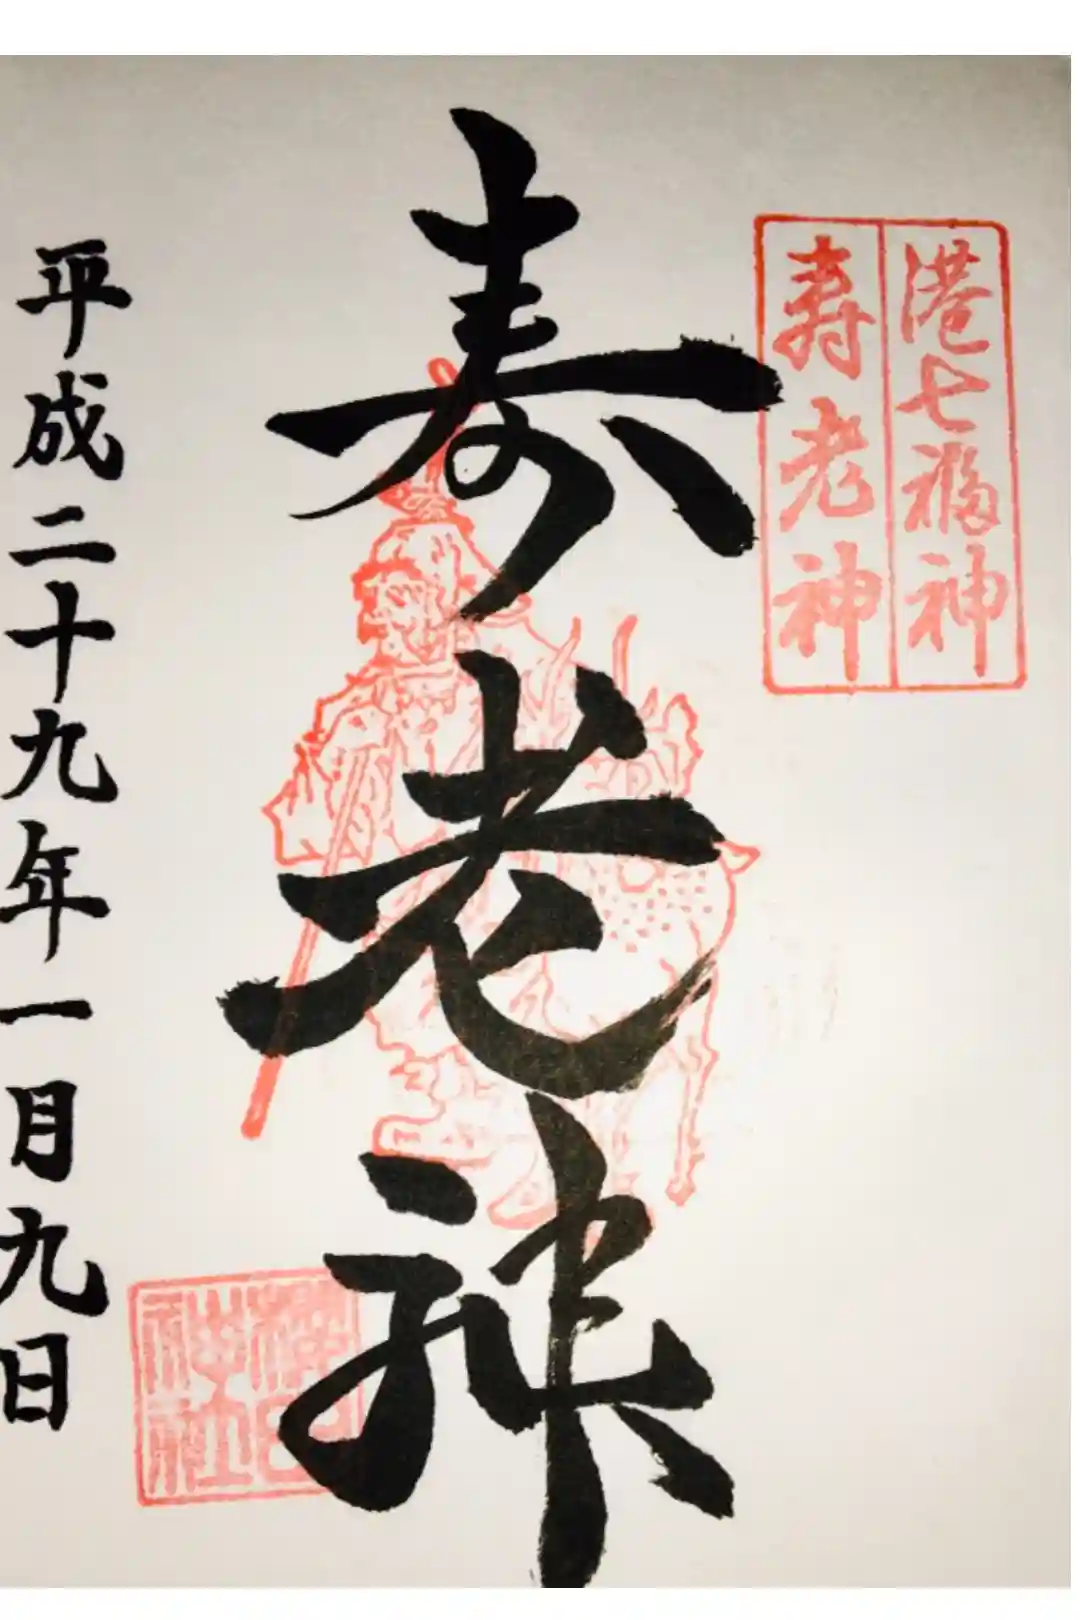 港七福神
寿老神
寿老神
平成二十九年一月九日
桜田
神社